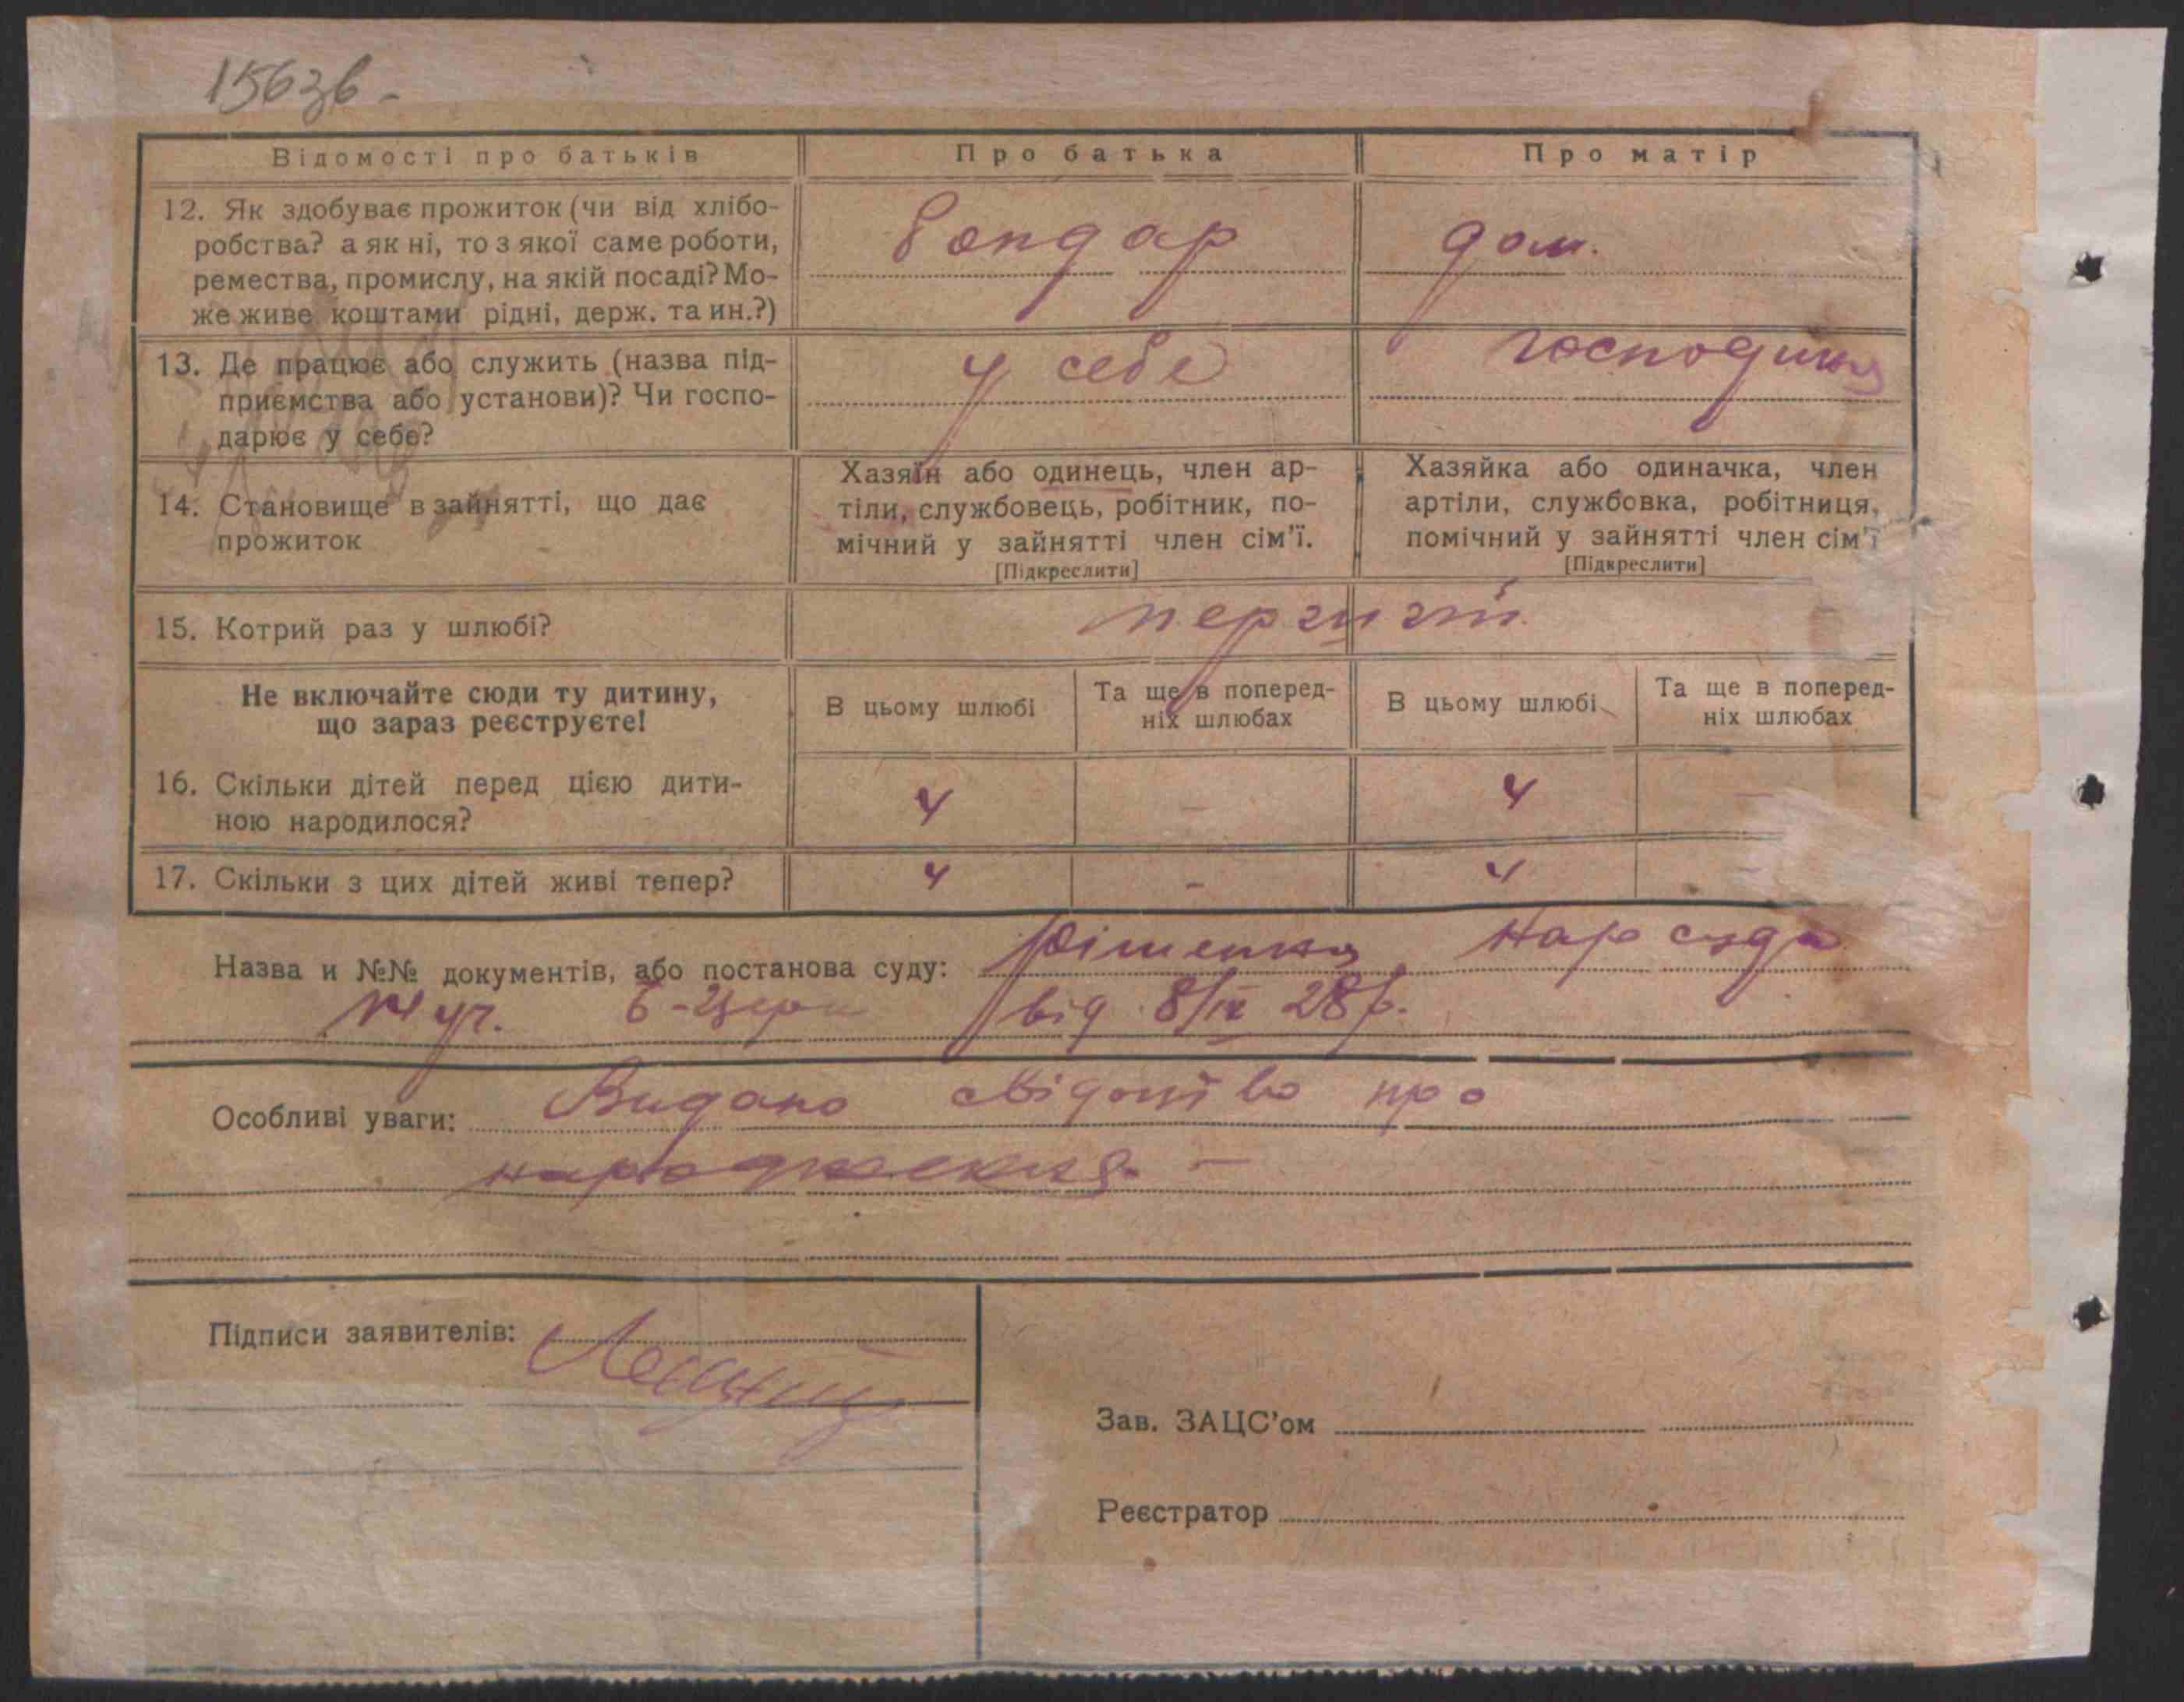 156зв -
Відомості про батьків
Про батька
Про матір
12. Як здобуває прожиток (чи від хлібо-
робства? а як ні, то з якої саме роботи,
ремества, промислу, на якій посаді? Мо-
же живе коштами рідні, держ. та ин.?)
бондар
дом.
13. Де працює або служить (назва під-
приємства або установи)? Чи госпо-
дарює у себе?
у себе
господиня
14. Становище в зайнятті, що дає
прожиток
Хазяїн або одинець, член ар-
тіли, службовець, робітник, по-
мічний у зайнятті член сім'ї.
[Підкреслити]
Хазяйка або одиначка, член
артіли, службовка, робітниця,
помічний у зайнятті член сім'ї
[Підкреслити]
15. Котрий раз у шлюбі?
Не включайте сюди ту дитину,
що зараз реєструєте!
В цьому шлюбі
Та ще в поперед-
ніх шлюбах
В цьому шлюбі
Та ще в поперед-
ніх шлюбах
16. Скільки дітей перед цією дити-
ною народилося?
4
-
4
17. Скільки з цих дітей живі тепер?
4
-
4
Назва и №№ документів, або постанова суду: Рішення Нар суда
від 8/IX 28р.
Особливі уваги: Видано свідоцтво про
народження -
Підписи заявителів:
Зав. ЗАЦС'ом
Реєстратор